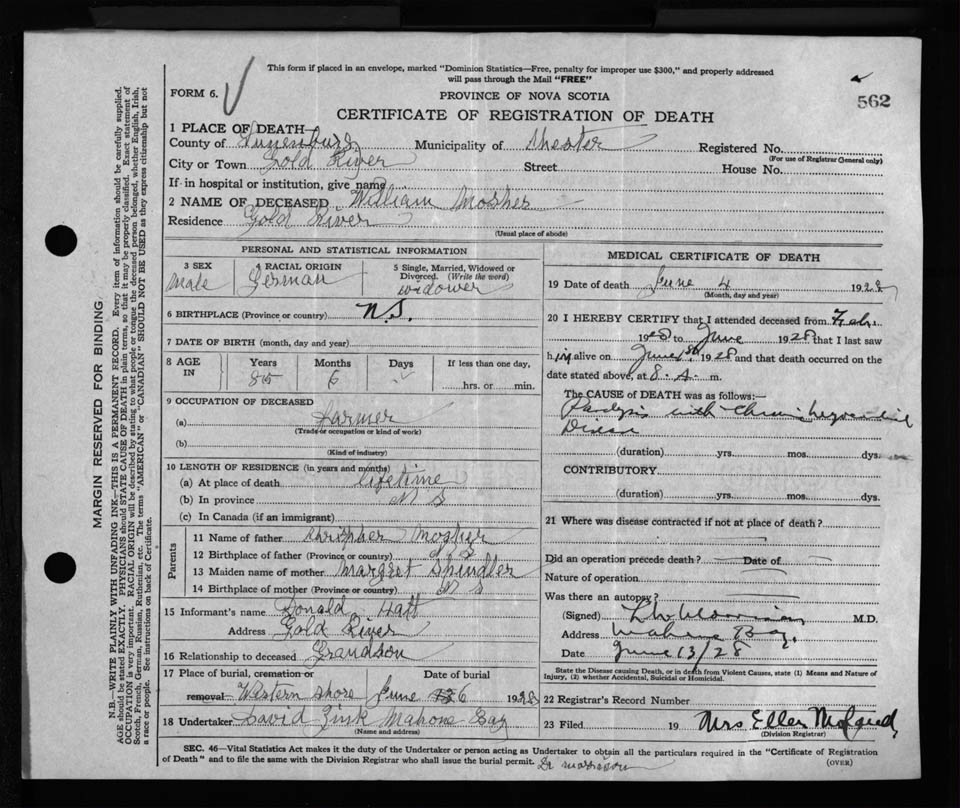 This form if placed in an envelope, marked "Dominion Statistics—Free, penalty for improper use $300," and properly addressed
will pass through the Mail "FREE"
FORM 6.
PROVINCE OF NOVA SCOTIA
562
CERTIFICATE OF REGISTRATION OF DEATH
1 PLACE OF DEATH—
County of Lunenburg Municipality of Chester Registered No.
(For use of Registrar General only)
City or Town Gold River Street House No.
If in hospital or institution, give name
2 NAME OF DECEASED William Mosher
Residence Gold River
(Usual place of abode)
PERSONAL AND STATISTICAL INFORMATION
3 SEX 4 RACIAL ORIGIN 5 Single, Married, Widowed or
Divorced. (Write the word)
Male German widower
6 BIRTHPLACE (Province or country) N.S.
7 DATE OF BIRTH (month, day and year)
8 AGE IN Years Months Days If less than one day,
85 6 hrs. or min.
9 OCCUPATION OF DECEASED
(a) farmer
(Trade or occupation or kind of work)
(b)
(Kind of industry)
10 LENGTH OF RESIDENCE (in years and months)
(a) At place of death lifetime
(b) In province N S
(c) In Canada (if an immigrant)
Parents
11 Name of father Mosher
12 Birthplace of father (Province or country) N S
13 Maiden name of mother Margret Spindler
14 Birthplace of mother (Province or country) N S
15 Informant's name Donald Hatt
Address Gold River
16 Relationship to deceased Grandson
17 Place of burial, cremation or Date of burial
removal Western Shore June 6 1928
18 Undertaker David Zink Mahone Bay
(Name and address)
MEDICAL CERTIFICATE OF DEATH
19 Date of death June 4 1928
(Month, day and year)
20 I HEREBY CERTIFY that I attended deceased from Feb.
1928 to June 1928 that I last saw
him alive on June 1st 1928 and that death occurred on the
date stated above, at 8. A. m.
The CAUSE of DEATH was as follows:—
Paralysis with Chronic
Disease
(duration) yrs. mos. dys.
CONTRIBUTORY
(duration) yrs. mos. dys.
21 Where was disease contracted if not at place of death?
Did an operation precede death? Date of
Nature of operation
Was there an autopsy?
(Signed) M.D.
Address Mahone Bay.
Date June 13/28
State the Disease causing Death, or in death from Violent Causes, state (1) Means and Nature of
Injury, (2) whether Accidental, Suicidal or Homicidal.
22 Registrar's Record Number
23 Filed 19 Mrs Ellen
(Division Registrar)
SEC. 46—Vital Statistics Act makes it the duty of the Undertaker or person acting as Undertaker to obtain all the particulars required in the "Certificate of Registration
of Death" and to file the same with the Division Registrar who shall issue the burial permit. Dr Morrison
(OVER)
MARGIN RESERVED FOR BINDING
N.B.—WRITE PLAINLY WITH UNFADING INK—THIS IS A PERMANENT RECORD. Every item of information should be carefully supplied.
AGE should be stated EXACTLY. PHYSICIANS should STATE CAUSE OF DEATH in plain terms, so that it may be properly classified. Exact statement of
OCCUPATION is very important. RACIAL ORIGIN will be described by stating to what people or tongue the deceased person belonged, whether English, Irish,
Scotch, French, German, Russian, Ruthenian, etc. The terms "AMERICAN" or "CANADIAN" SHOULD NOT BE USED as they express citizenship but not
a race or people. See instructions on back of Certificate.